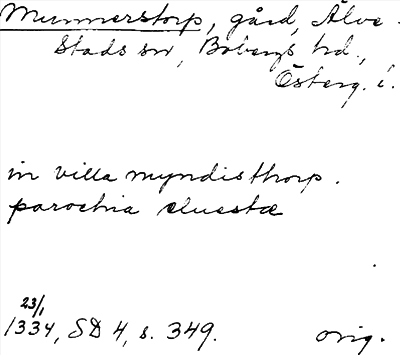 Munnerstorp, gård, Älve-
stads sn, Bobergs hd.,
Österg. l.
in villa myndisthorp.
parochia eluestæ
23/1
1334, SD 4, s. 349. orig.